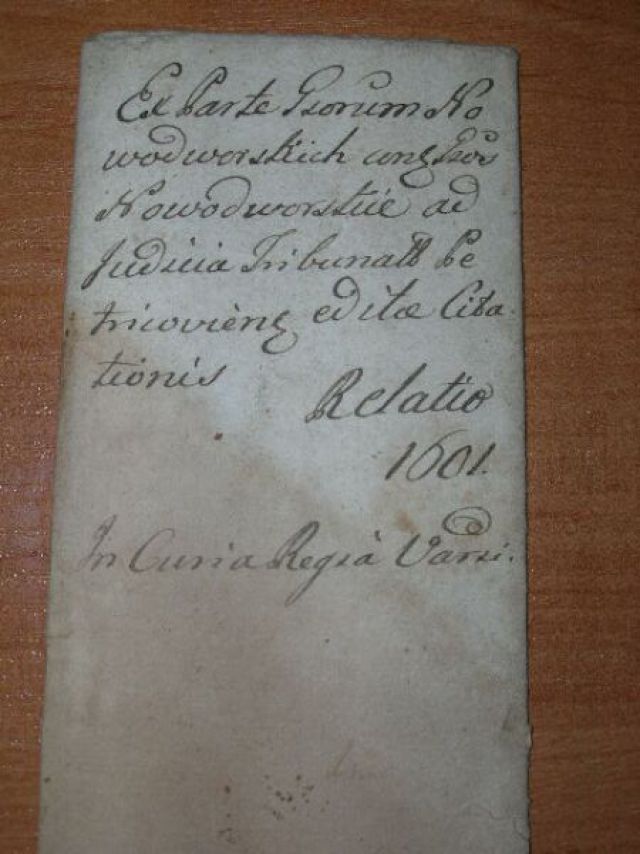 Ex Parte Gsorum No
wodworskich cong Gsos
Nowodworskie ad
Judicia Tribunall Pe
tricovieng editæ Cita
tionis
Relatio
1601.
In Curia Regia Varsi.